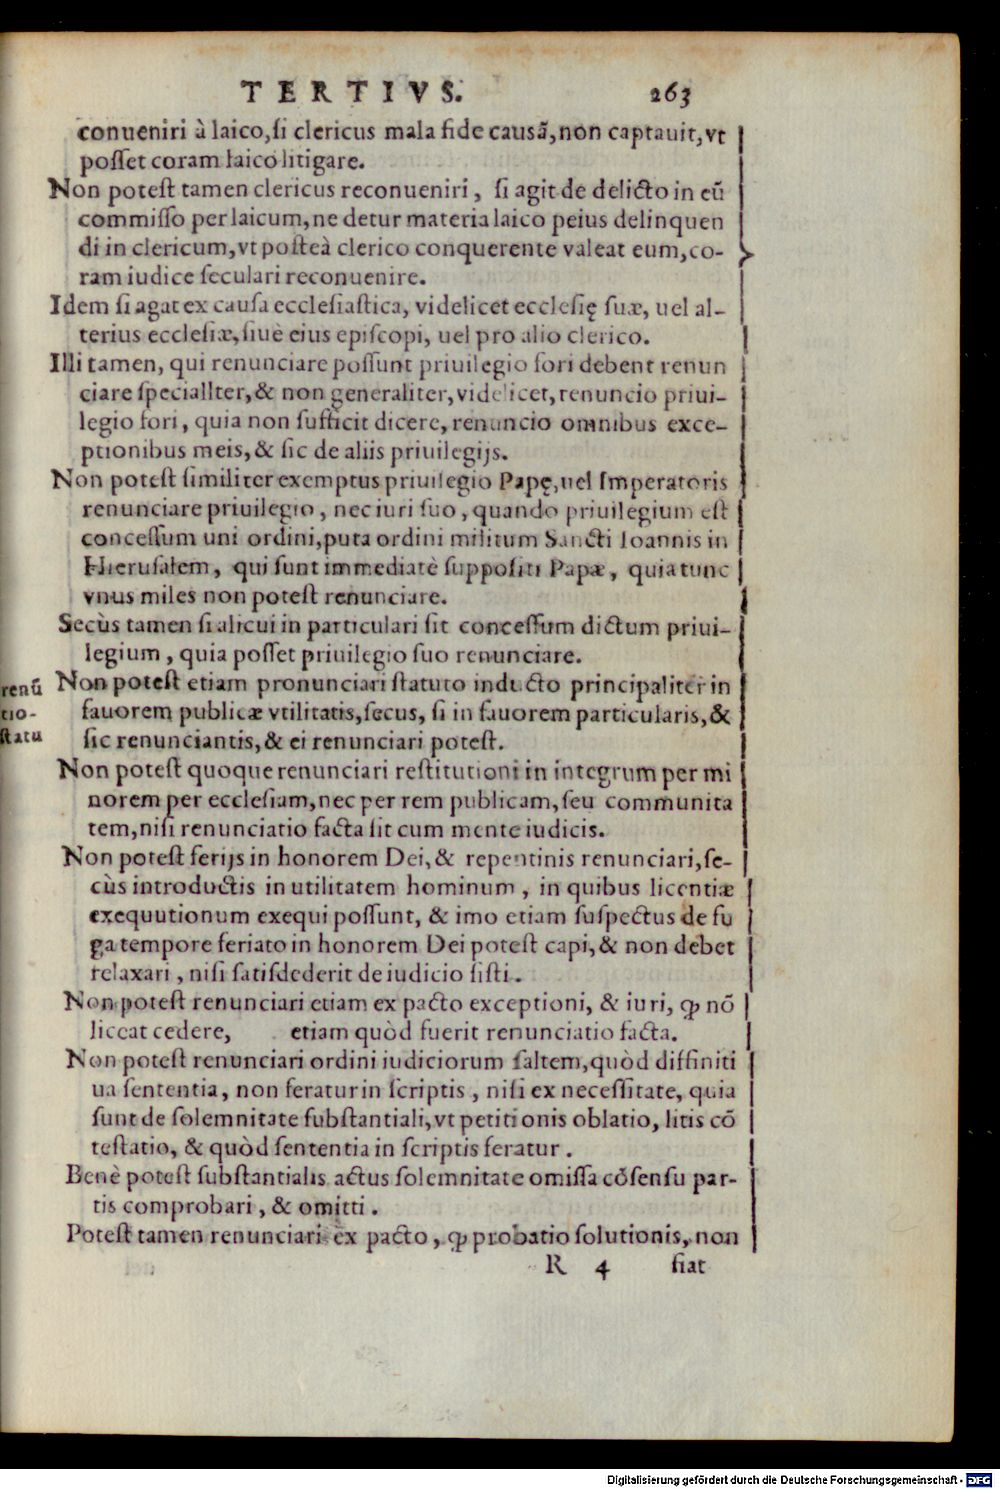 TERTIVS. 263
conueniri à laico, si clericus mala fide causã, non captauit, vt
posset coram laico litigare.
Non potest tamen clericus reconueniri, si agit de delicto in eũ
commisso per laicum, ne detur materia laico peius delinquen
di in clericum, vt posteà clerico conquerente valeat eum, co-
ram iudice seculari reconuenire.
Idem si agat ex causa ecclesiastica, videlicet ecclesię suæ, uel al-
terius ecclesiæ, siuè eius episcopi, uel pro alio clerico.
Illi tamen, qui renunciare possunt priuilegio fori debent renun
ciare specialiter, & non generaliter, videlicet, renuncio priui-
legio fori, quia non sufficit dicere, renuncio omnibus exce-
ptionibus meis, & sic de aliis priuilegijs.
Non potest similiter exemptus priuilegio Papę, uel Imperatoris
renunciare priuilegio, nec iuri suo, quando priuilegium est
concessum uni ordini, puta ordini militum Sancti Ioannis in
Hierusalem, qui sunt immediatè suppositi Papæ, quia tunc
vnus miles non potest renunciare.
Secùs tamen si alicui in particulari sit concessum dictum priui-
legium, quia posset priuilegio suo renunciare.
renũ Non potest etiam pronunciari statuto inducto principaliter in
tio- fauorem publicæ vtilitatis, secus, si in fauorem particularis, &
statu sic renunciantis, & ei renunciari potest.
Non potest quoque renunciari restitutioni in integrum per mi
norem per ecclesiam, nec per rem publicam, seu communita
tem, nisi renunciatio facta sit cum mente iudicis.
Non potest ferijs in honorem Dei, & repentinis renunciari, se-
cùs introductis in utilitatem hominum, in quibus licentiæ
exequutionum exequi possunt, & imo etiam suspectus de fu
ga tempore feriato in honorem Dei potest capi, & non debet
relaxari, nisi satisdederit de iudicio sisti.
Non potest renunciari etiam ex pacto exceptioni, & iuri, ꝙ nõ
liceat cedere, etiam quòd fuerit renunciatio facta.
Non potest renunciari ordini iudiciorum saltem, quòd diffiniti
ua sententia, non feratur in scriptis, nisi ex necessitate, quia
sunt de solemnitate substantiali, vt petitionis oblatio, litis cõ
testatio, & quòd sententia in scriptis feratur.
Benè potest substantialis actus solemnitate omissa cõsensu par-
tis comprobari, & omitti.
Potest tamen renunciari ex pacto, ꝙ probatio solutionis, non
R 4 fiat
Digitalisierung gefördert durch die Deutsche Forschungsgemeinschaft - DFG